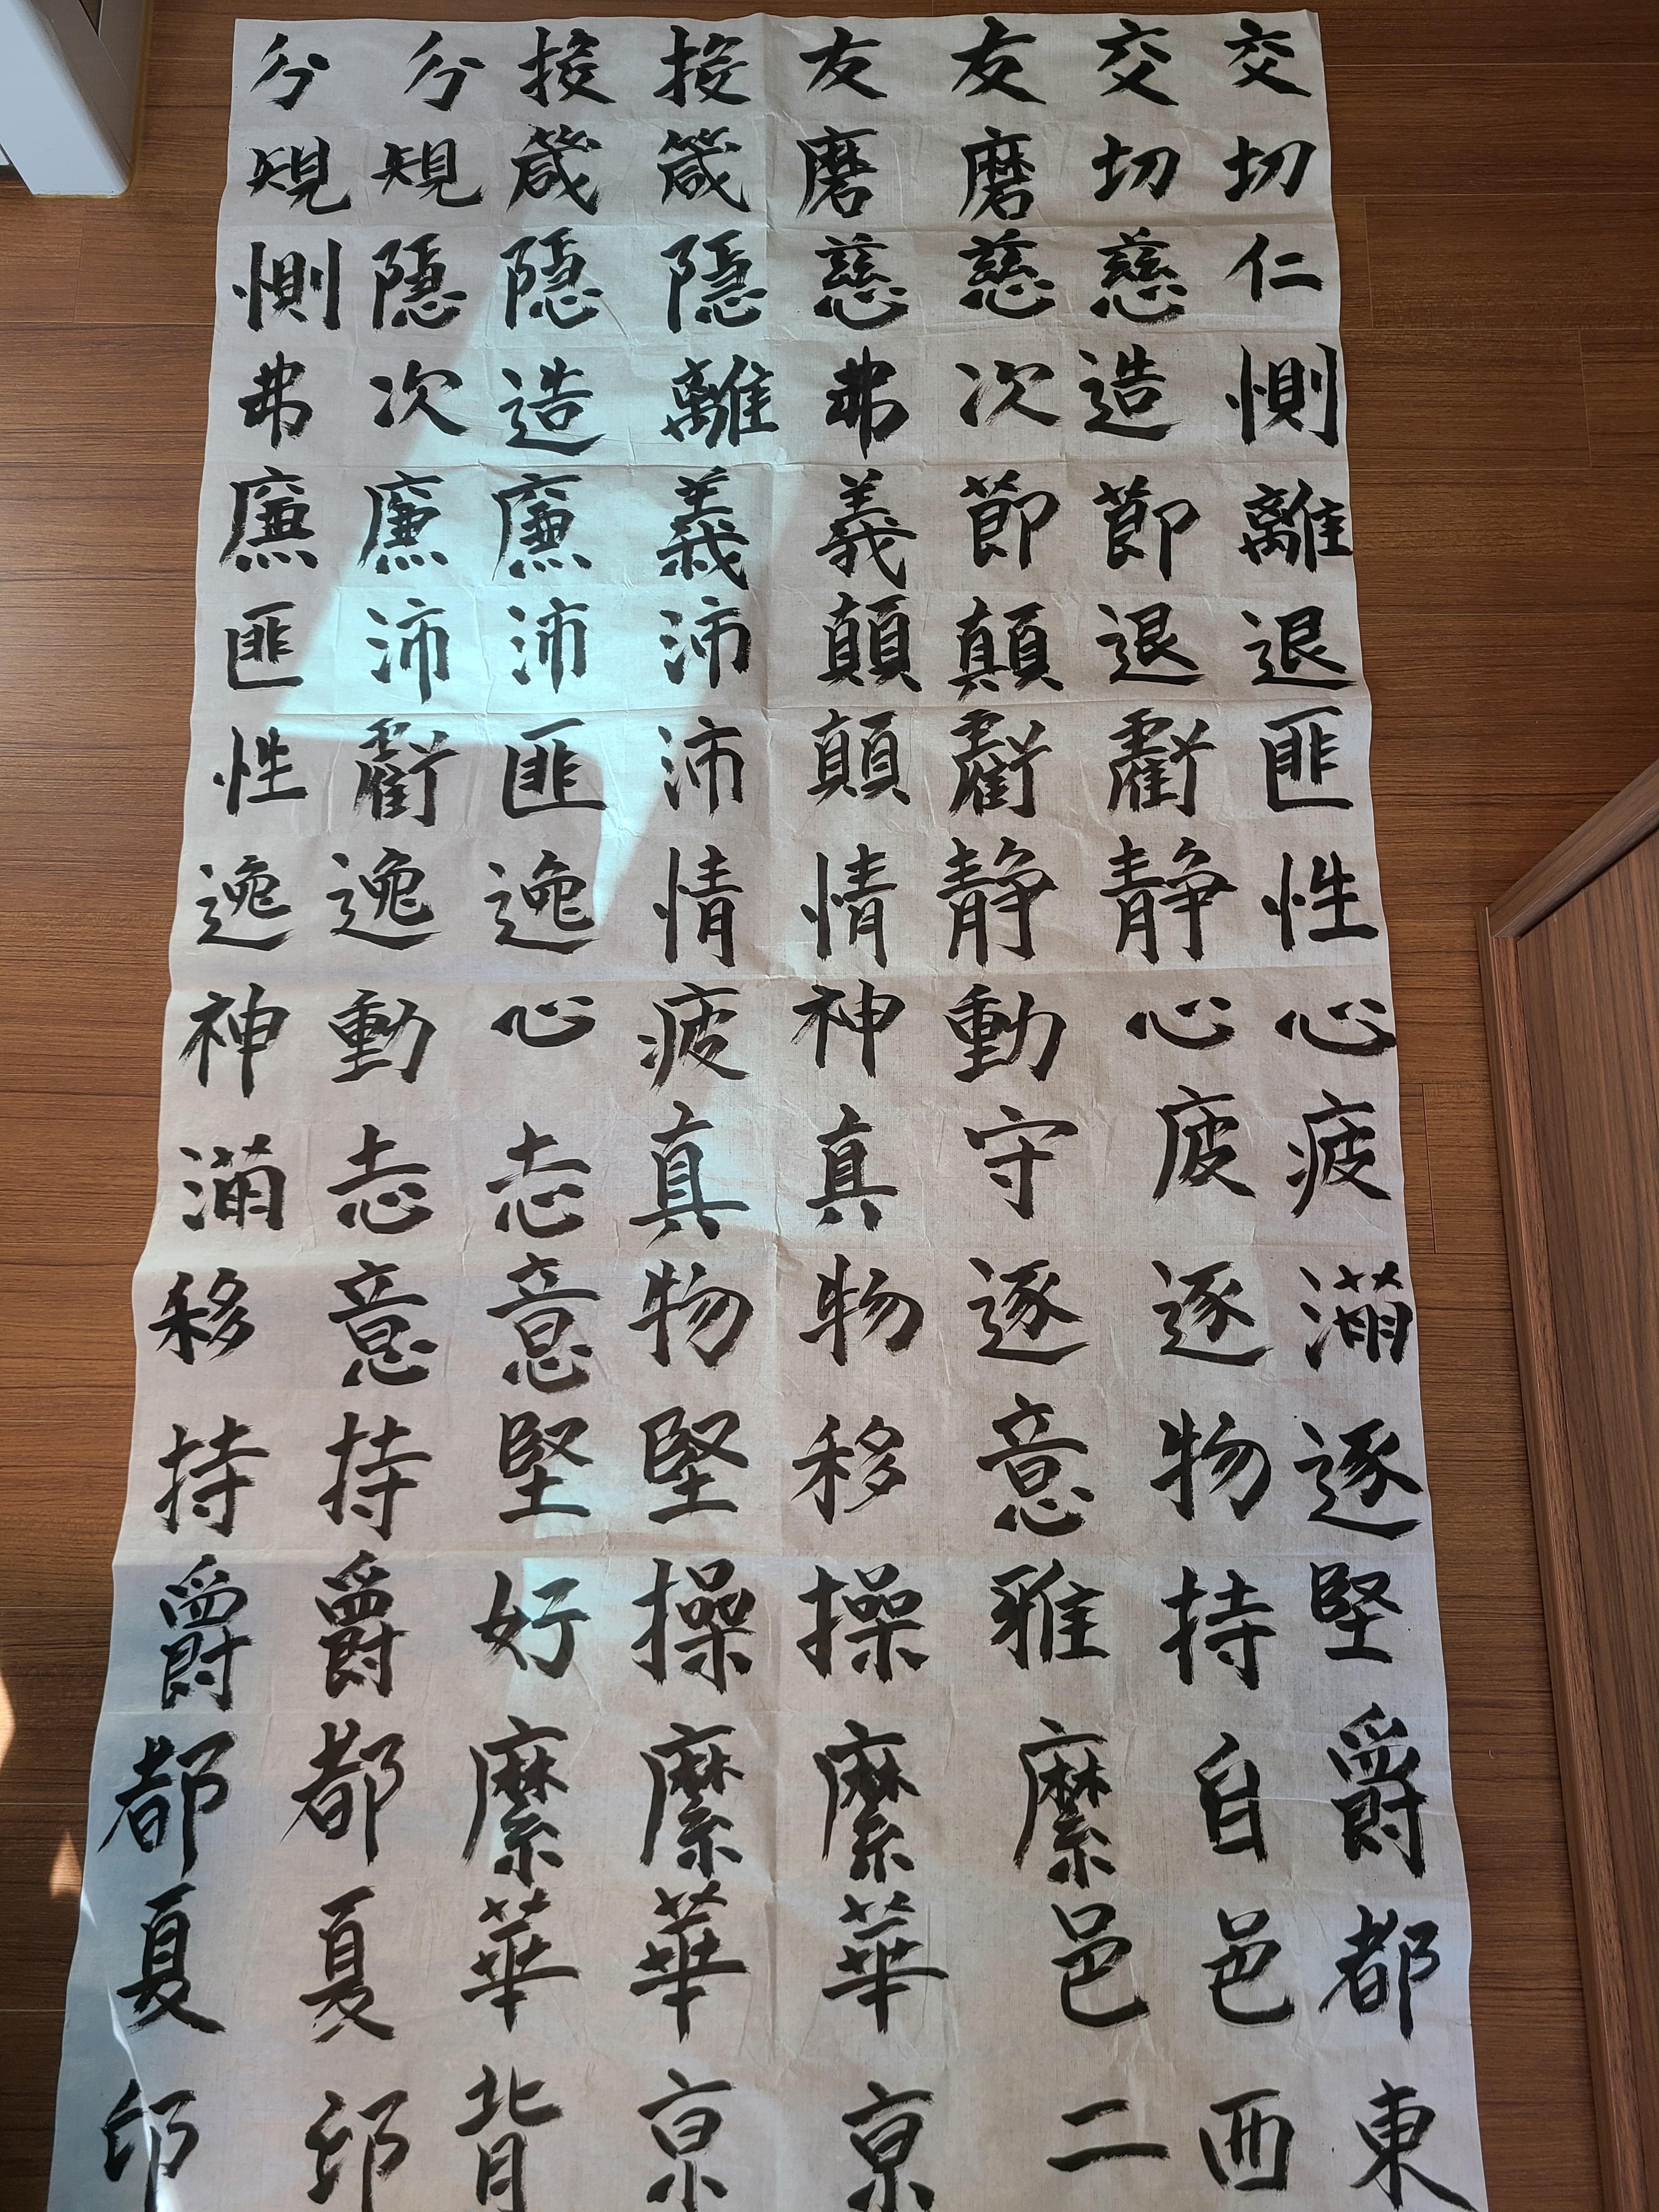 交交友友投投分分
切切磨磨箴箴規規
仁慈慈慈隱隱隱惻
惻造次弗離造次弗
離節節義義廉廉廉
退退顛顛沛沛沛匪
匪虧虧顛沛匪虧性
性静静情情逸逸逸
心心動神疲心動神
疲疲守真真志志滿
滿逐逐物物意意移
逐物意移堅堅持持
堅持雅操操好爵爵
爵自縻縻縻縻都都
都邑邑華華華夏夏
東西二京京背邙邙